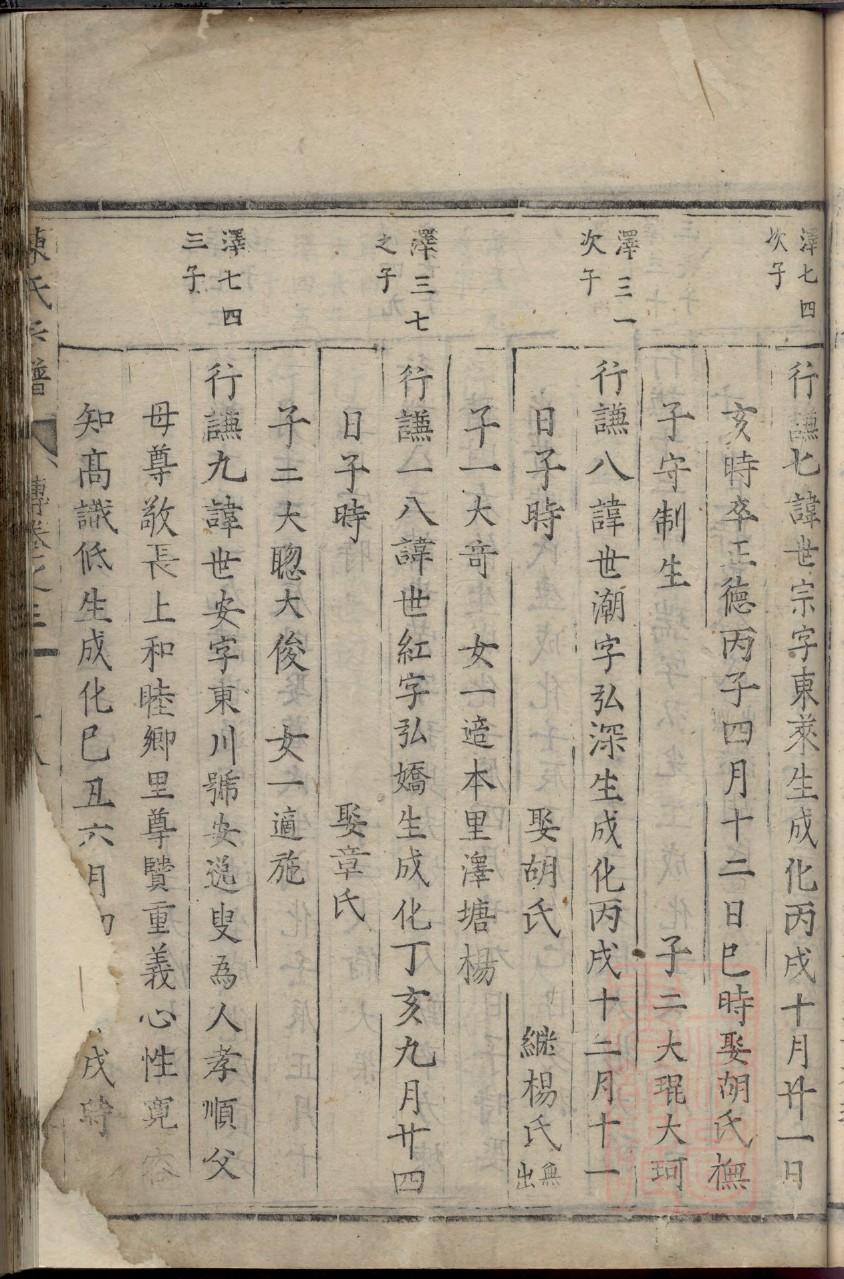 澤七四
次子
行謙七諱世宗字東萊生成化丙戌十月廿一日
亥時卒正德丙子四月十二日巳時娶胡氏撫
子守制生 子二大琨大珂
澤三一
次子
行謙八諱世潮字弘深生成化丙戌十二月十一
日子時 娶胡氏 繼楊氏無出
子一大奇 女一適本里澤塘楊
澤三七
之子
行謙一八諱世紅字弘嬌生成化丁亥九月廿四
日子時 娶章氏
子二大聰大俊 女一適施
澤七四
三子
行謙九諱世安字東川號安逸叟為人孝順父
母尊敬長上和睦鄉里尊賢重義心性寬容
知高識低生成化己丑六月初 戌時
陳氏宗譜 傳卷之三